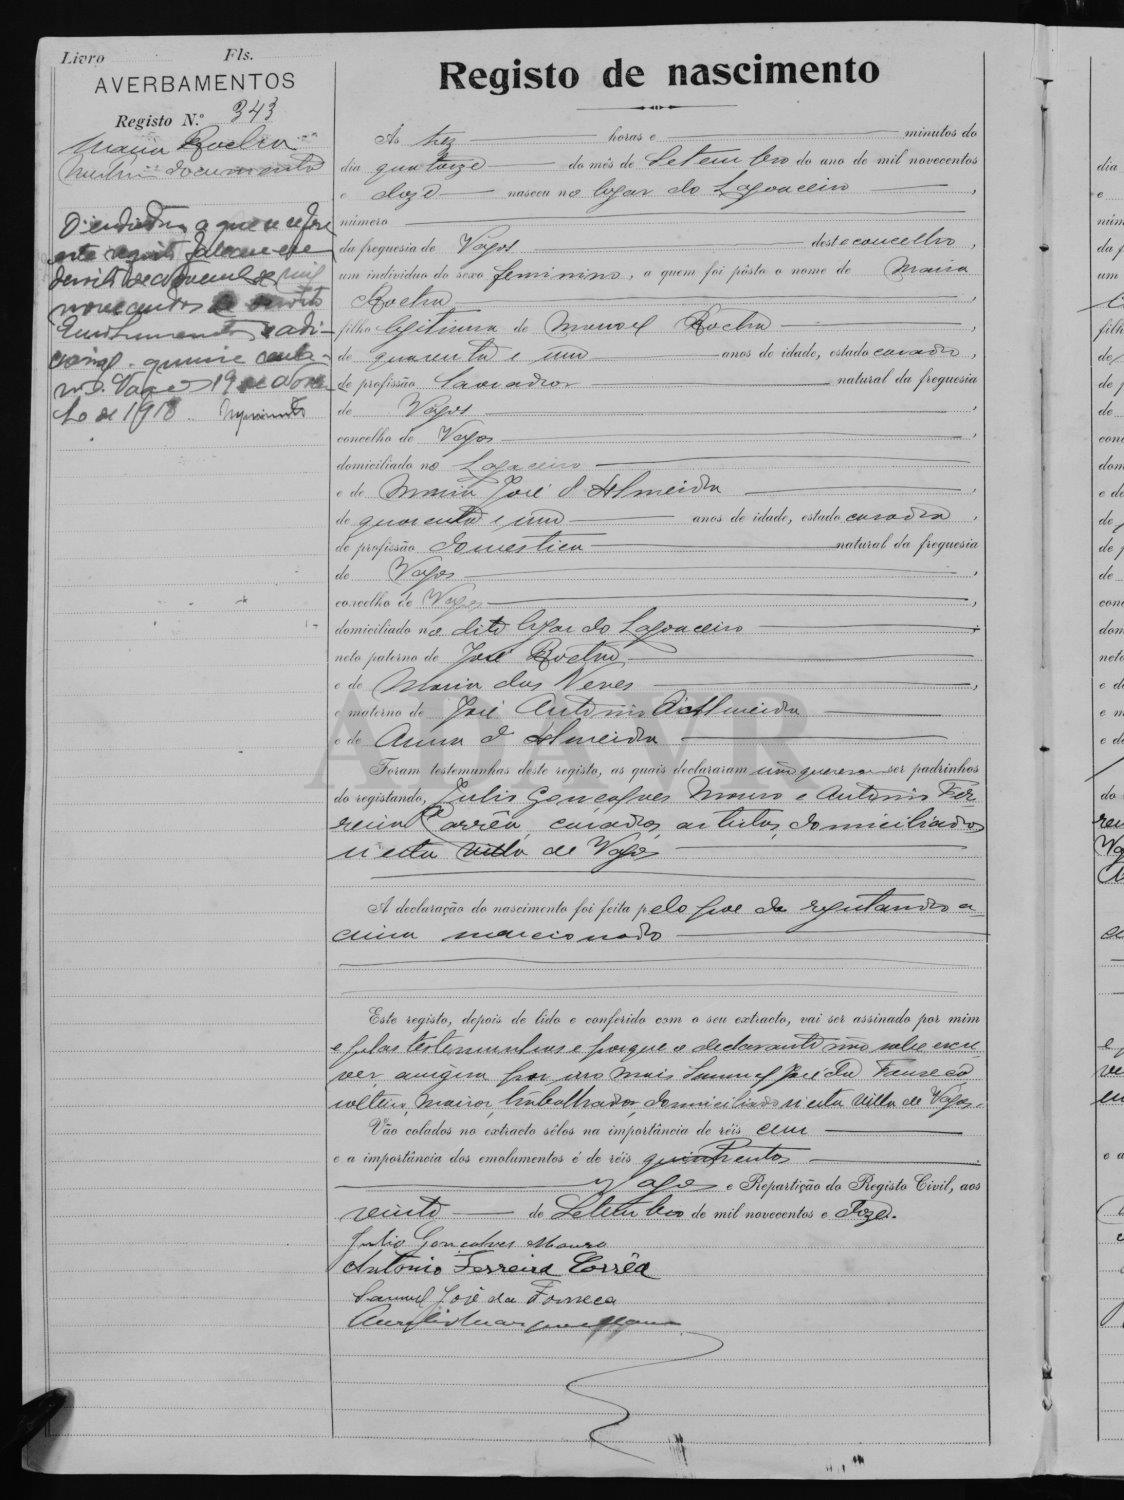 Livro Fls.
AVERBAMENTOS
Registo N.º 343
Maria Rocha
Nenhum documento
O individuo a que se refere
este registo faleceu em
mil
novecentos e dezoito
Emolumentos e adi-
cional quinze centa-
vos. Vagos 19 de
de 1918.
Registo de nascimento
Às trez horas e minutos do
dia quatorze do mês de Setembro do ano de mil novecentos
e doze nasceu no logar do Lagoaceiro,
número
da freguesia de Vagos deste concelho,
um indivíduo do sexo feminino, a quem foi pôsto o nome de Maria
Rocha,
filho legitimo de Manoel Rocha,
de quarenta e um anos de idade, estado casado,
de profissão lavrador natural da freguesia
de Vagos,
concelho de Vagos,
domiciliado no Lagoaceiro
e de Maria José d'Almeida,
de quarenta e um anos de idade, estado casada,
de profissão domestica natural da freguesia
de Vagos,
concelho de Vagos,
domiciliado no dito logar do Lagoaceiro,
neto paterno de José Rocha
e de Maria das Neves,
e materno de José Antonio d'Almeida
e de Anna d'Almeida
Foram testemunhas deste registo, as quais declararam não quererem ser padrinhos
do registando, Julio Gonçalves Mouro e Antonio Fer-
reira Corrêa, casados, artistas, domiciliados
n'esta villa de Vagos
A declaração do nascimento foi feita pelo pae da registando a-
cima mencionado
Este registo, depois de lido e conferido com o seu extracto, vai ser assinado por mim
e pelas testemunhas e porque o declarante não sabe escre-
ver, assigna por elle Samuel José da Fonseca
solteiro, maior, trabalhador, domiciliado n'esta villa de Vagos.
Vão colados no extracto sêlos na importância de réis cem
e a importância dos emolumentos é de réis quinhentos.
Vagos e Repartição do Registo Civil, aos
vinte de Setembro de mil novecentos e doze.
Julio Gonçalves Mouro
Antonio Ferreira Corrêa
Samuel José da Fonseca
ADAVR